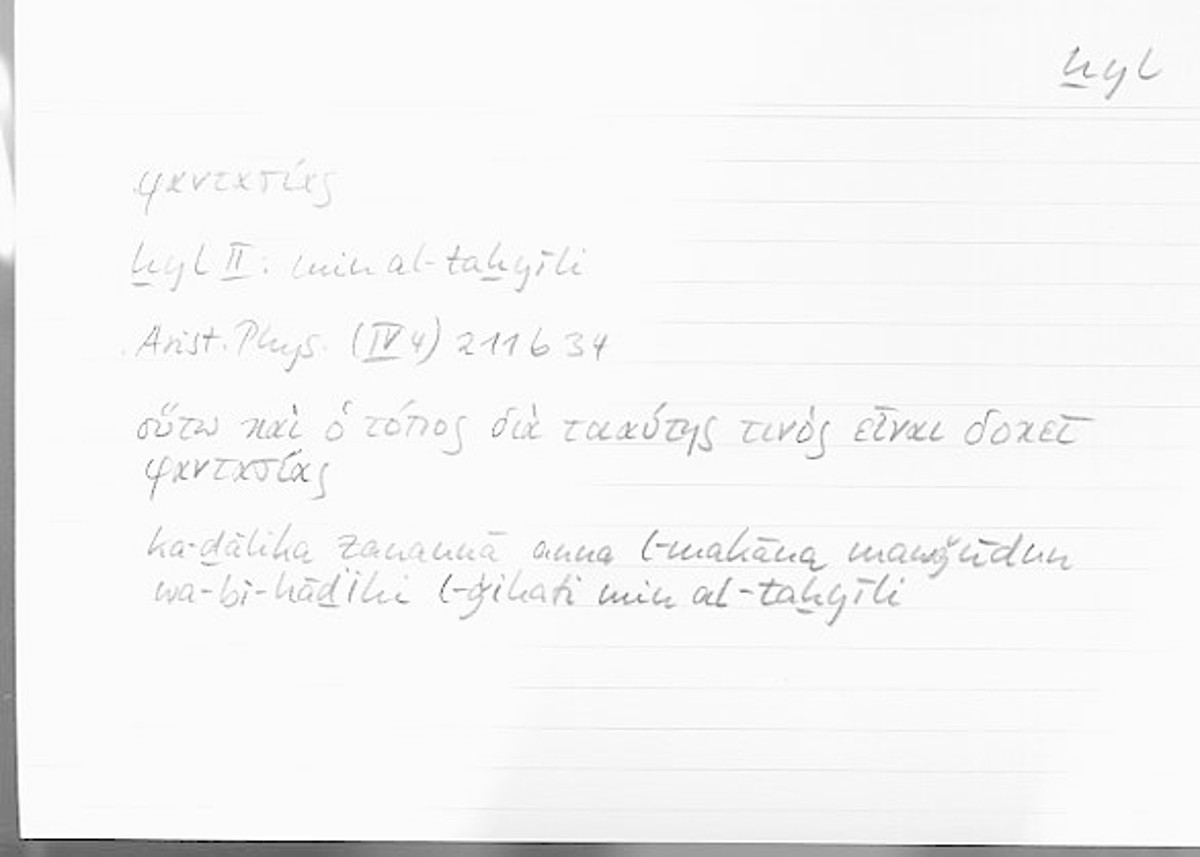 ḫyl
φαντασίας
ḫyl II: min al-taḫyīli
Arist. Phys. (IV 4) 211 b 34
οὕτω καὶ ὁ τόπος διὰ τοιαύτης τινὸς εἶναι δοκεῖ
φαντασίας
ka-ḏālika ẓanannā anna l-makāna mawǧūdun
wa-bi-hāḏihi l-ǧihati min al-taḫyīli